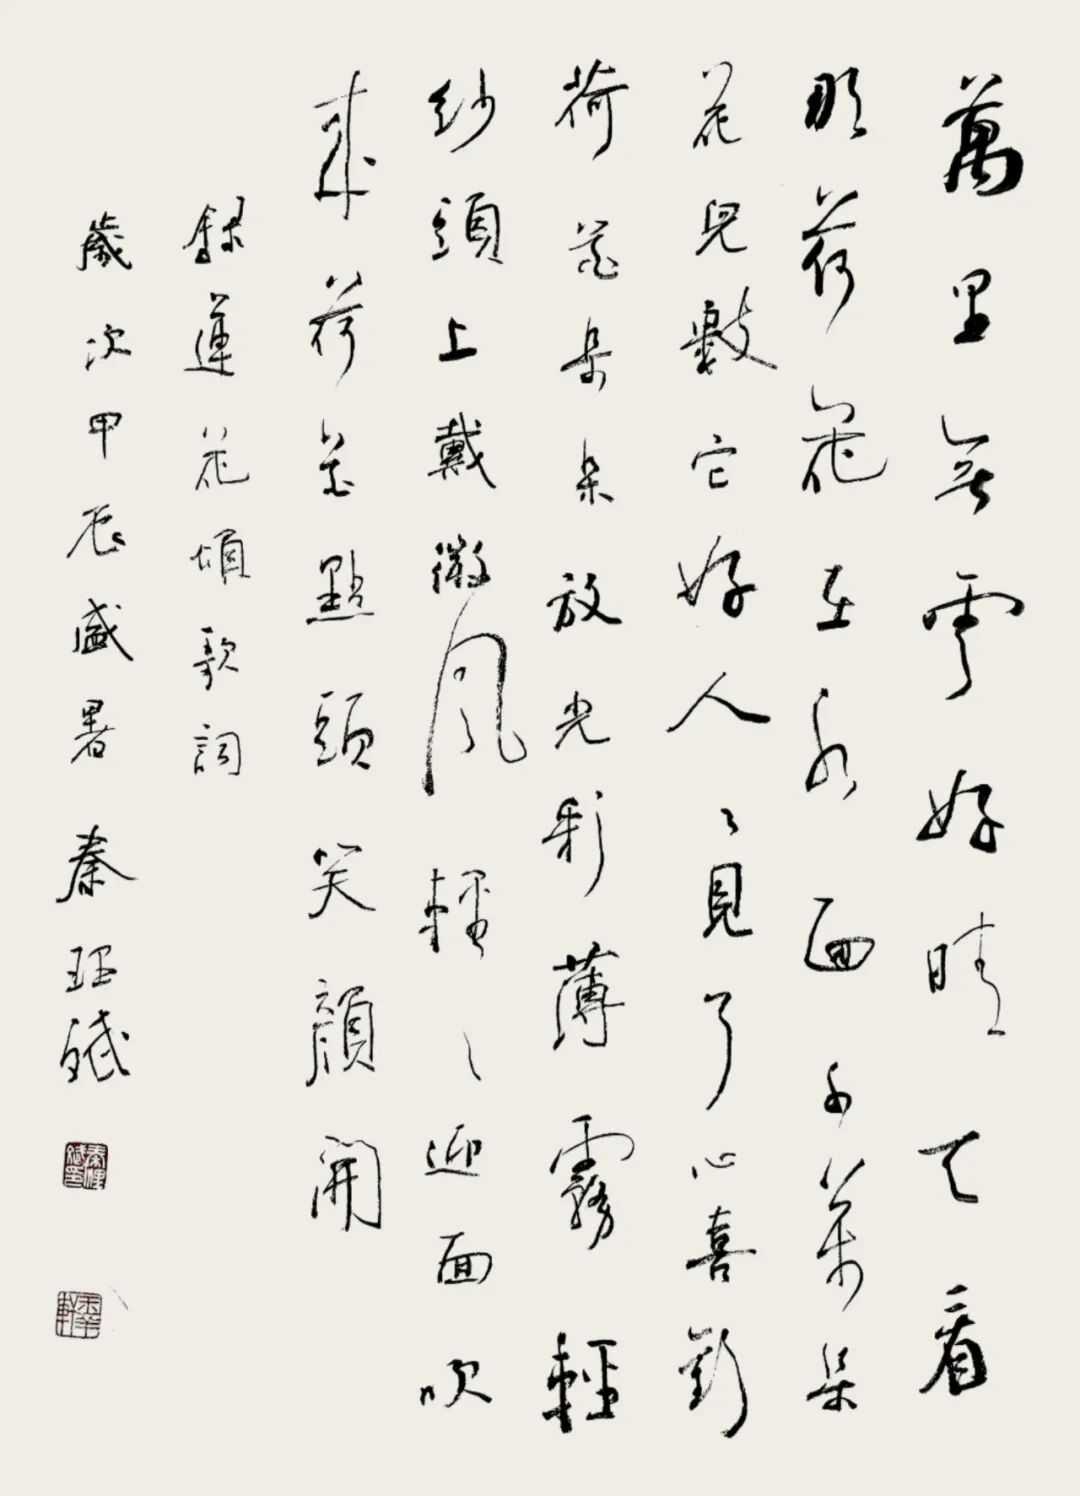 萬里無雲好晴天看
那荷花在水面千萬朵
花兒數它好人〻見了心喜對
荷花朵朵放光彩薄霧輕
紗頭上戴微風輕〻迎面吹
來荷花點頭笑顏開
錄蓮花頌歌詞
歲次甲辰盛暑 秦